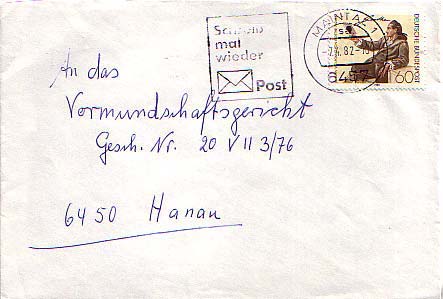 Schreib
mal
wieder
Post
MAINTAL 1
6457
DEUTSCHE BUNDESPOST
60
An das
Vormundschaftsgericht
Gesch. Nr. 20 VII 3/76
6450 Hanau